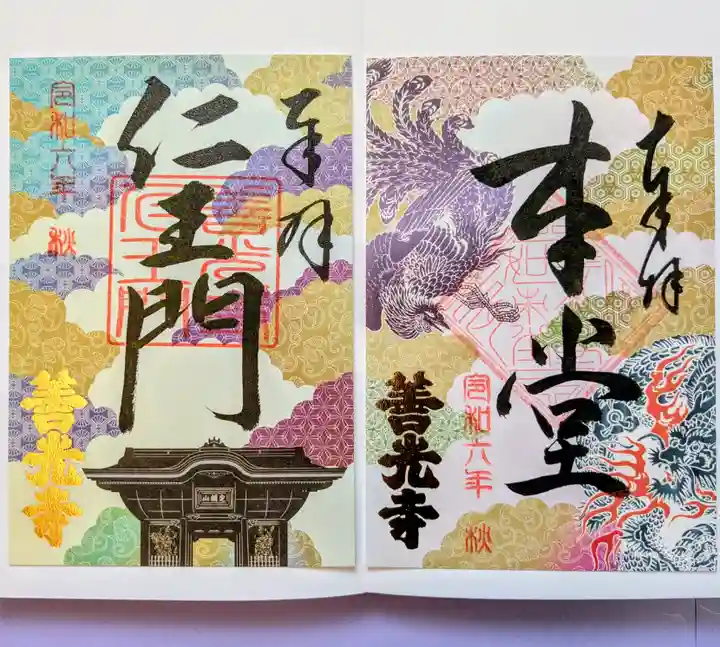 奉拝
仁王門
令和六年 秋
善光寺
定額山
奉拝
本堂
令和六年 秋
善光寺